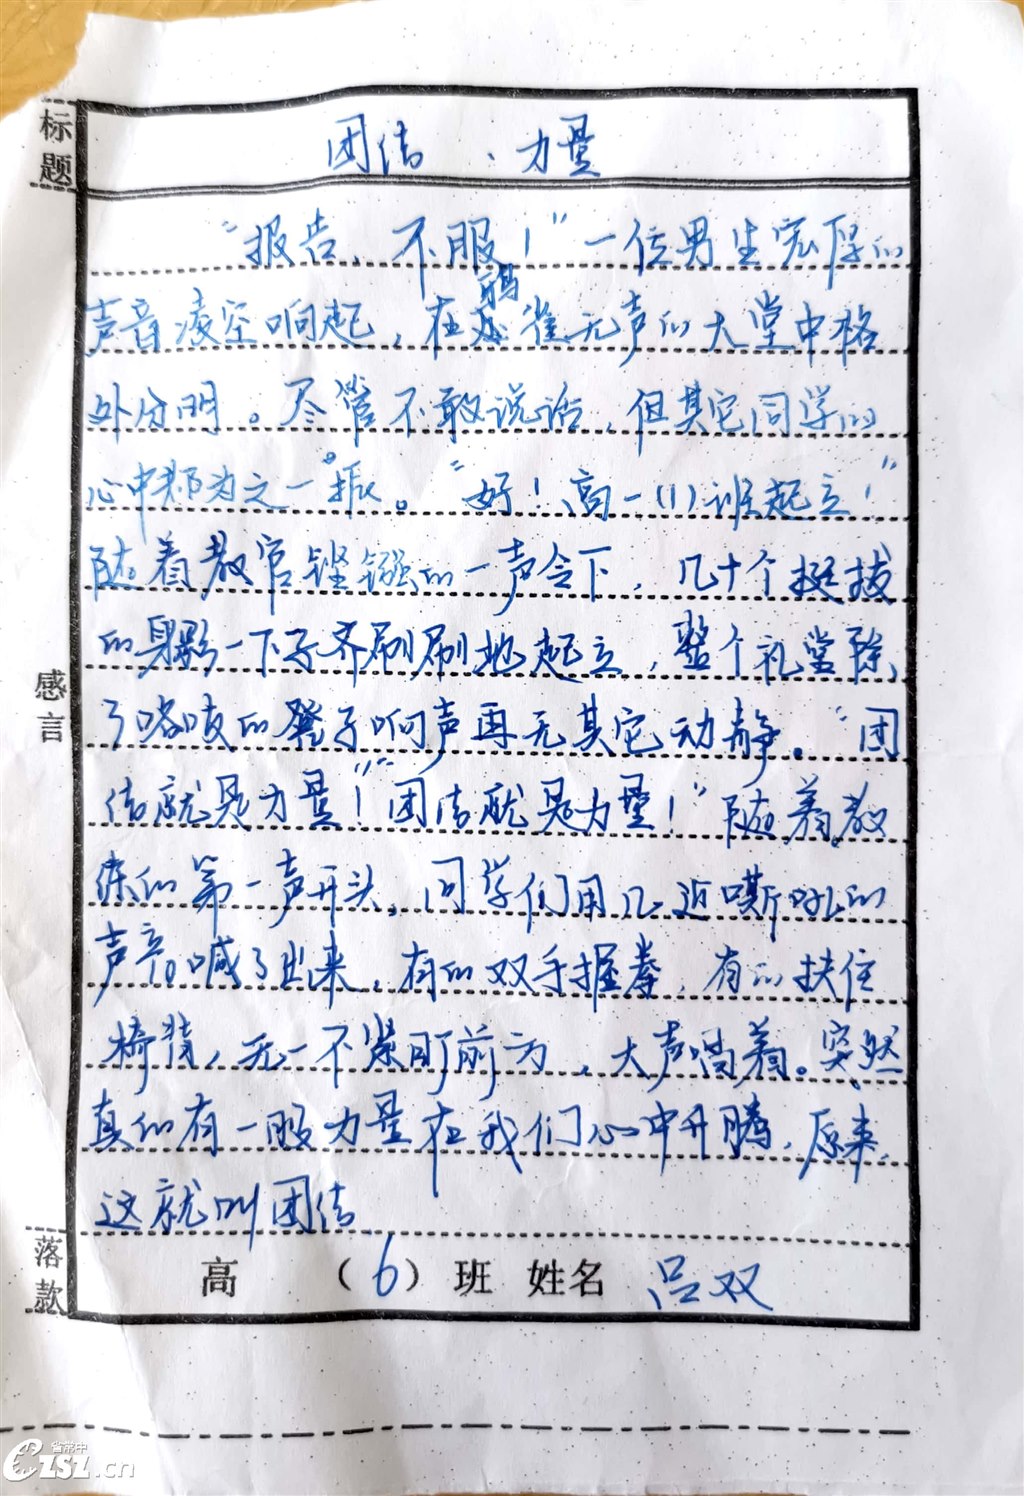 标题
团结、力量
“报告，不服！”一位男生宽厚的
声音凌空响起，在鸦雀无声的大堂中格
外分明。尽管不敢说话，但其它同学的
心中都为之一振。“好！高一(1)班起立！”
随着教官铿锵的一声令下，几十个挺拔
的身影一下子齐刷刷地起立，整个礼堂除
了咯吱的凳子响声再无其它动静。“团
结就是力量！”“团结就是力量！”随着教
练的第一声开头，同学们用几近嘶吼的
声音喊了出来，有的双手握拳，有的扶住
椅背，无一不紧盯前方，大声喊着。突然
真的有一股力量在我们心中升腾，原来，
这就叫团结
感言
落款
高 （6）班 姓名 吕双
省常中
CZSZ.cn